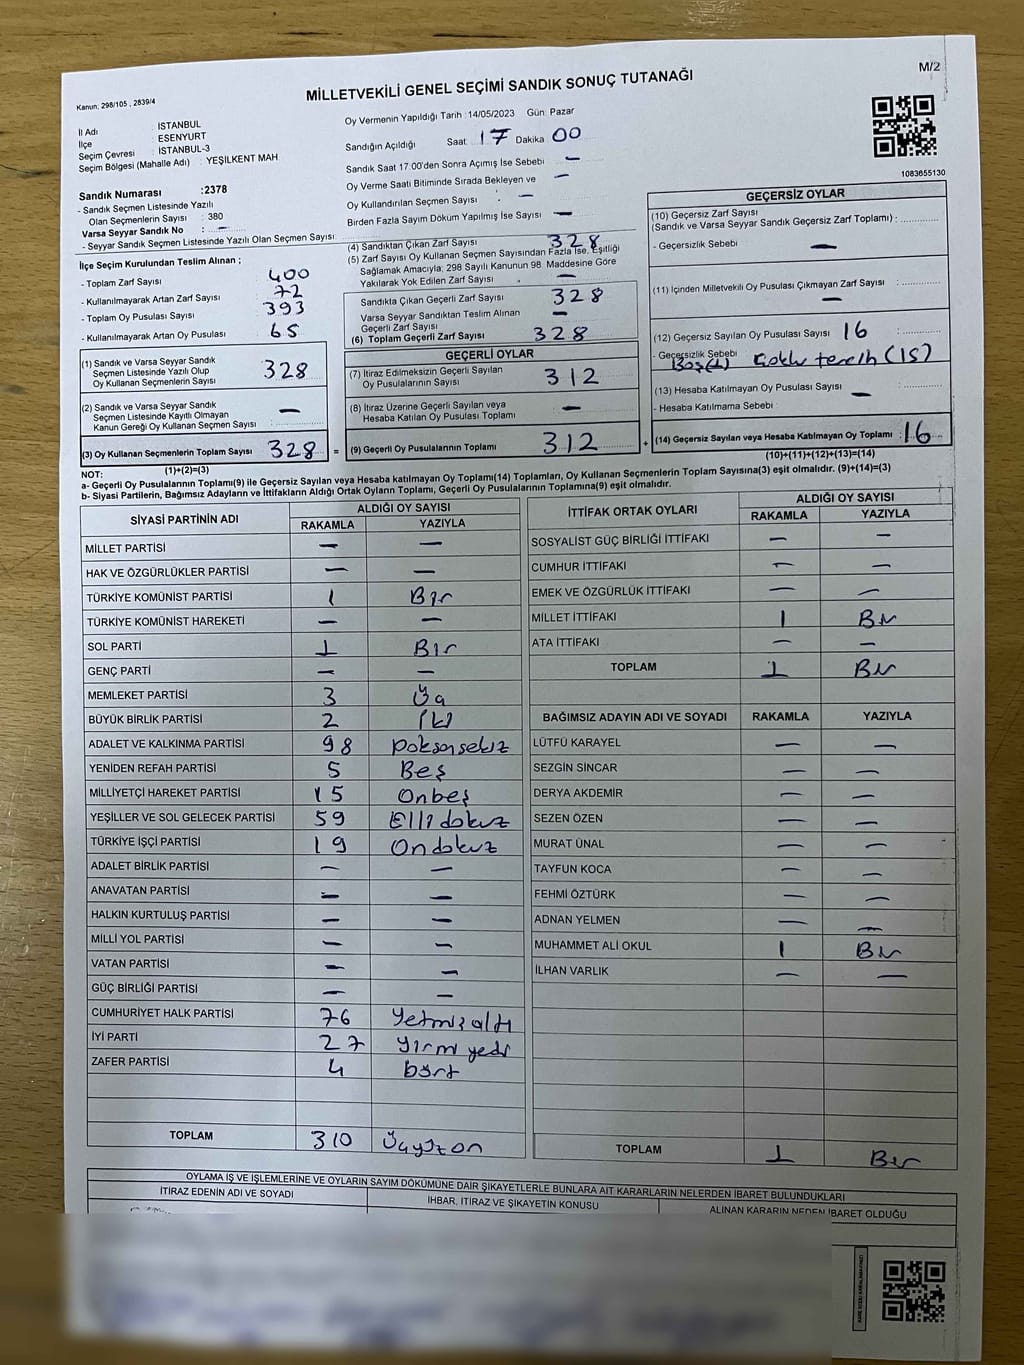 M/2
MİLLETVEKİLİ GENEL SEÇİMİ SANDIK SONUÇ TUTANAĞI
Kanun: 298/105 , 2839/4
İl Adı : İSTANBUL
İlçe : ESENYURT
Seçim Çevresi : İSTANBUL-3
Seçim Bölgesi (Mahalle Adı) : YEŞİLKENT MAH
Sandık Numarası :2378
- Sandık Seçmen Listesinde Yazılı
Olan Seçmenlerin Sayısı : 380
Varsa Seyyar Sandık No : —
- Seyyar Sandık Seçmen Listesinde Yazılı Olan Seçmen Sayısı:
Oy Vermenin Yapıldığı Tarih :14/05/2023 Gün: Pazar
Sandığın Açıldığı Saat 17 Dakika 00
Sandık Saat 17:00'den Sonra Açımış İse Sebebi —
Oy Verme Saati Bitiminde Sırada Bekleyen ve —
Oy Kullandırılan Seçmen Sayısı : —
Birden Fazla Sayım Döküm Yapılmış İse Sayısı —
1083655130
İlçe Seçim Kurulundan Teslim Alınan ;
- Toplam Zarf Sayısı : 400
- Kullanılmayarak Artan Zarf Sayısı : 72
- Toplam Oy Pusulası Sayısı : 393
- Kullanılmayarak Artan Oy Pusulası : 65
(1) Sandık ve Varsa Seyyar Sandık
Seçmen Listesinde Yazılı Olup
Oy Kullanan Seçmenlerin Sayısı : 328
(2) Sandık ve Varsa Seyyar Sandık
Seçmen Listesinde Kayıtlı Olmayan
Kanun Gereği Oy Kullanan Seçmen Sayısı : —
(3) Oy Kullanan Seçmenlerin Toplam Sayısı : 328 =
(1)+(2)=(3)
(4) Sandıktan Çıkan Zarf Sayısı 328
(5) Zarf Sayısı Oy Kullanan Seçmen Sayısından Fazla İse, Eşitliği
Sağlamak Amacıyla; 298 Sayılı Kanunun 98. Maddesine Göre
Yakılarak Yok Edilen Zarf Sayısı : —
Sandıkta Çıkan Geçerli Zarf Sayısı 328
Varsa Seyyar Sandıktan Teslim Alınan
Geçerli Zarf Sayısı —
(6) Toplam Geçerli Zarf Sayısı : 328
GEÇERLİ OYLAR
(7) İtiraz Edilmeksizin Geçerli Sayılan
Oy Pusulalarının Sayısı : 312
(8) İtiraz Üzerine Geçerli Sayılan veya
Hesaba Katılan Oy Pusulası Toplamı : —
(9) Geçerli Oy Pusulalarının Toplamı : 312 +
GEÇERSİZ OYLAR
(10) Geçersiz Zarf Sayısı
(Sandık ve Varsa Seyyar Sandık Geçersiz Zarf Toplamı) :
- Geçersizlik Sebebi : —
(11) İçinden Milletvekili Oy Pusulası Çıkmayan Zarf Sayısı :
—
(12) Geçersiz Sayılan Oy Pusulası Sayısı 16 :
- Geçersizlik Sebebi Boş(1) Çoklu tercih (15)
(13) Hesaba Katılmayan Oy Pusulası Sayısı : —
- Hesaba Katılmama Sebebi :
(14) Geçersiz Sayılan veya Hesaba Katılmayan Oy Toplamı : 16
(10)+(11)+(12)+(13)=(14)
NOT:
a- Geçerli Oy Pusulalarının Toplamı(9) ile Geçersiz Sayılan veya Hesaba katılmayan Oy Toplamı(14) Toplamları, Oy Kullanan Seçmenlerin Toplam Sayısına(3) eşit olmalıdır. (9)+(14)=(3)
b- Siyasi Partilerin, Bağımsız Adayların ve İttifakların Aldığı Ortak Oyların Toplamı, Geçerli Oy Pusulalarının Toplamına(9) eşit olmalıdır.
SİYASİ PARTİNİN ADI ALDIĞI OY SAYISI
RAKAMLA YAZIYLA
MİLLET PARTİSİ — —
HAK VE ÖZGÜRLÜKLER PARTİSİ — —
TÜRKİYE KOMÜNİST PARTİSİ 1 Bir
TÜRKİYE KOMÜNİST HAREKETİ — —
SOL PARTİ 1 Bir
GENÇ PARTİ — —
MEMLEKET PARTİSİ 3 Üç
BÜYÜK BİRLİK PARTİSİ 2 İki
ADALET VE KALKINMA PARTİSİ 98 Doksansekiz
YENİDEN REFAH PARTİSİ 5 Beş
MİLLİYETÇİ HAREKET PARTİSİ 15 Onbeş
YEŞİLLER VE SOL GELECEK PARTİSİ 59 Ellidokuz
TÜRKİYE İŞÇİ PARTİSİ 19 Ondokuz
ADALET BİRLİK PARTİSİ — —
ANAVATAN PARTİSİ — —
HALKIN KURTULUŞ PARTİSİ — —
MİLLİ YOL PARTİSİ — —
VATAN PARTİSİ — —
GÜÇ BİRLİĞİ PARTİSİ — —
CUMHURİYET HALK PARTİSİ 76 Yetmişaltı
İYİ PARTİ 27 Yirmi yedi
ZAFER PARTİSİ 4 Dört
TOPLAM 310 Üçyüzon
İTTİFAK ORTAK OYLARI ALDIĞI OY SAYISI
RAKAMLA YAZIYLA
SOSYALİST GÜÇ BİRLİĞİ İTTİFAKI — —
CUMHUR İTTİFAKI — —
EMEK VE ÖZGÜRLÜK İTTİFAKI — —
MİLLET İTTİFAKI 1 Bir
ATA İTTİFAKI — —
TOPLAM 1 Bir
BAĞIMSIZ ADAYIN ADI VE SOYADI RAKAMLA YAZIYLA
LÜTFÜ KARAYEL — —
SEZGİN SİNCAR — —
DERYA AKDEMİR — —
SEZEN ÖZEN — —
MURAT ÜNAL — —
TAYFUN KOCA — —
FEHMİ ÖZTÜRK — —
ADNAN YELMEN — —
MUHAMMET ALİ OKUL 1 Bir
İLHAN VARLIK — —
TOPLAM 1 Bir
OYLAMA İŞ VE İŞLEMLERİNE VE OYLARIN SAYIM DÖKÜMÜNE DAİR ŞİKAYETLERLE BUNLARA AİT KARARLARIN NELERDEN İBARET BULUNDUKLARI
İTİRAZ EDENİN ADI VE SOYADI İHBAR, İTİRAZ VE ŞİKAYETİN KONUSU ALINAN KARARIN NEDEN İBARET OLDUĞU